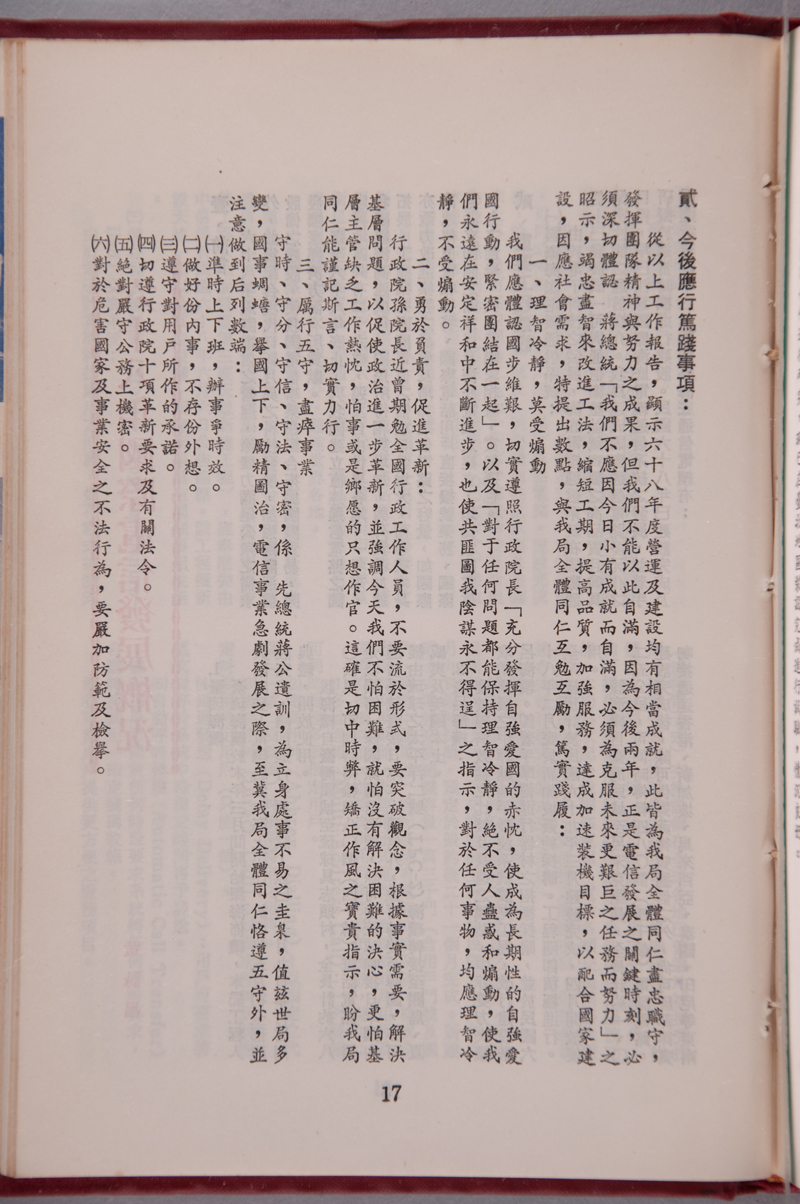 貳、今後應行篤踐事項：
從以上工作報告，顯示六十八年度營運及建設均有相當成就，此皆為我局全體同仁盡忠職守，
發揮團隊精神與努力之成果，但我們不能以此自滿，因為今後兩年，正是電信發展之關鍵時刻，必
須深切體認　蔣總統「我們不應因今日小有成就而自滿，必須為克服未來更艱巨之任務而努力」之
昭示，竭忠盡智來改進工法，縮短工期，提高品質，加強服務，達成加速裝機目標，以配合國家建
設，因應社會需求，特提出數點，與我局全體同仁互勉互勵，篤實踐履：
一、理智冷靜，莫受煽動
我們應體認國步維艱，切實遵照行政院長「充分發揮自強愛國的赤忱，使成為長期性的自強愛
國行動，緊密團結在一起」。以及「對于任何問題都能保持理智冷靜，絕不受人蠱惑和煽動，使我
們永遠在安定祥和中不斷進步，也使共匪圖我陰謀永不得逞」之指示，對於任何事物，均應理智冷
靜，不受煽動。
二、勇於負責，促進革新：
行政院孫院長近曾期勉全國行政工作人員，不要流於形式，要突破觀念，根據事實需要，解決
基層問題，以促使政治進一步革新，並強調今天我們不怕困難，就怕沒有解決困難的決心，更怕基
層主管缺乏工作熱忱，怕事或是鄉愿的只想作官。這確是切中時弊，矯正作風之寶貴指示，盼我局
同仁能謹記斯言、切實力行。
三、厲行五守，盡瘁事業
守時、守分、守信、守法、守密，係　先總統蔣公遺訓，為立身處事不易之圭臬，值茲世局多
變，國事蜩螗，舉國上下，勵精圖治，電信事業急劇發展之際，至冀我局全體同仁恪遵五守外，並
注意做到后列數端：
㈠準時上下班，辦事爭時效。
㈡做好份內事，不存份外想。
㈢遵守對用戶所作的承諾。
㈣切遵行政院十項革新要求及有關法令。
㈤絕對嚴守公務上機密。
㈥對於危害國家及事業安全之不法行為，要嚴加防範及檢舉。
17